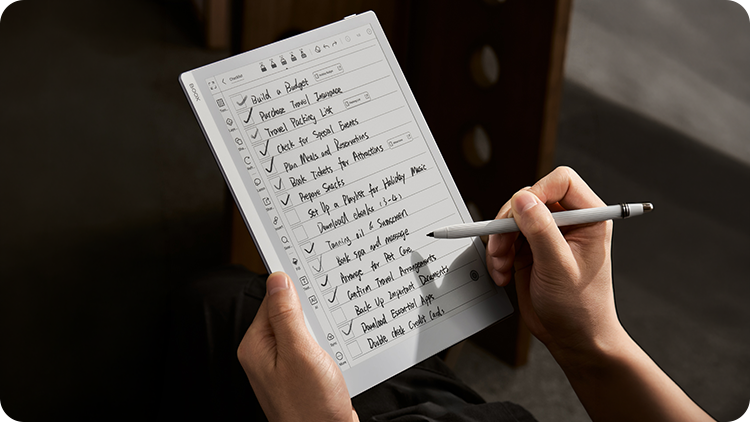 BOOX
Checklist
Build a Budget
Purchase Travel Insurance
Travel Packing List
Check for Special Events
Plan Meals and Reservations
Book Tickets for Attractions
Prepare Snacks
Set Up a Playlist for Holiday Music
Download ebooks (3-4)
Tanning oil & Sunscreen
Book spa and massage
Arrange for Pet Care
Confirm Travel Arrangements
Back Up Important Documents
Download Essential Apps
Double check Credit Cards